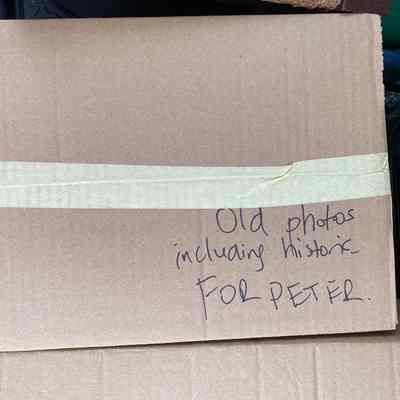 Old photos
including historic
FOR PETER.